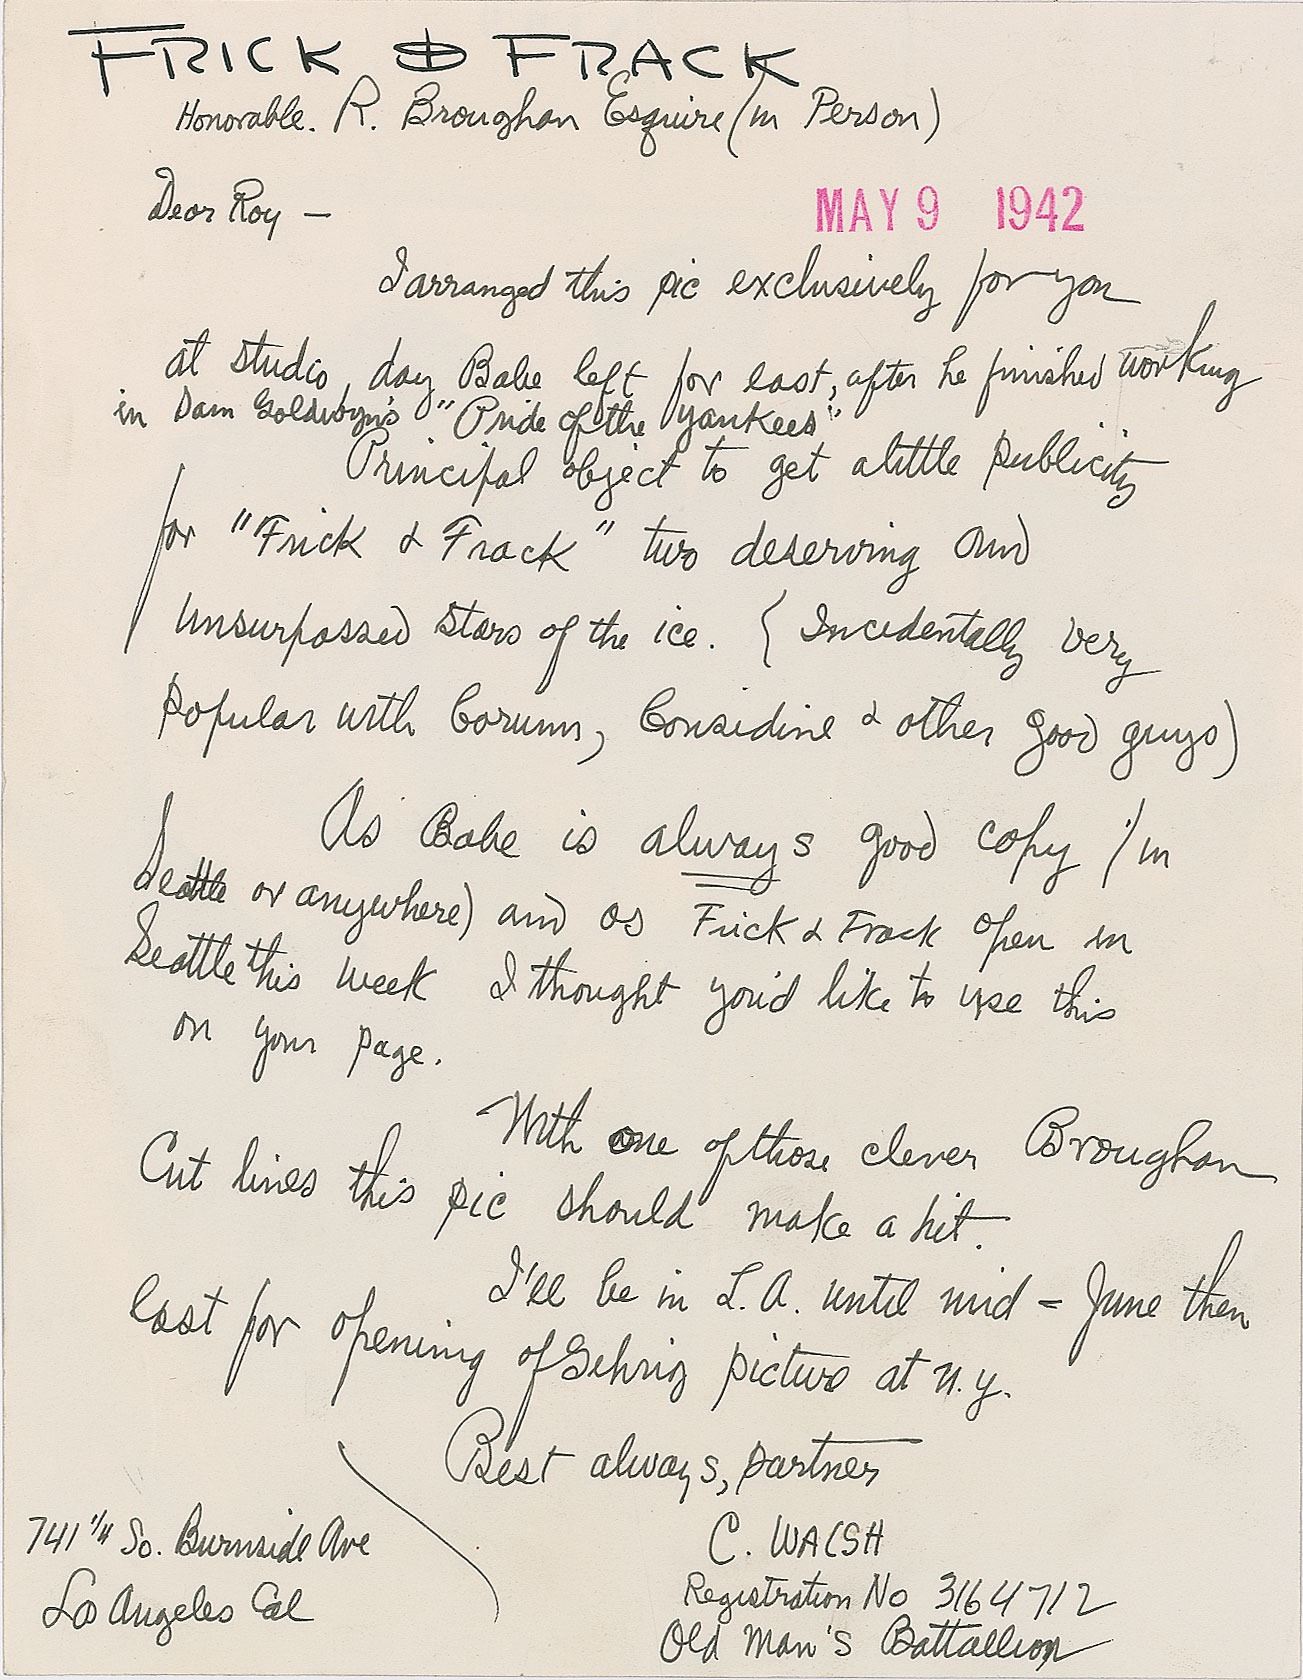 FRICK & FRACK
Honorable. R. Broughan Esquire (in Person)
Dear Roy —
MAY 9 1942
I arranged this pic exclusively for you
at studio, day Babe left for east, after he finished working
in Sam Goldwyn's "Pride of the Yankees"
Principal object to get a little publicity
for "Frick & Frack" two deserving and
unsurpassed stars of the ice. (Incidentally very
popular with Corum, Considine & other good guys)
As Babe is always good copy (in
Seattle or anywhere) and as Frick & Frack open in
Seattle this week I thought you'd like to use this
on your page.
With one of those clever Broughan
Cut lines this pic should make a hit.
I'll be in L.A. until mid - June then
East for opening of Gehrig picture at N.Y.
Best always, partner
C. WALSH
Registration No 3164712
Old Man's Battallion
741 1/4 So. Burnside Ave
Los Angeles Cal